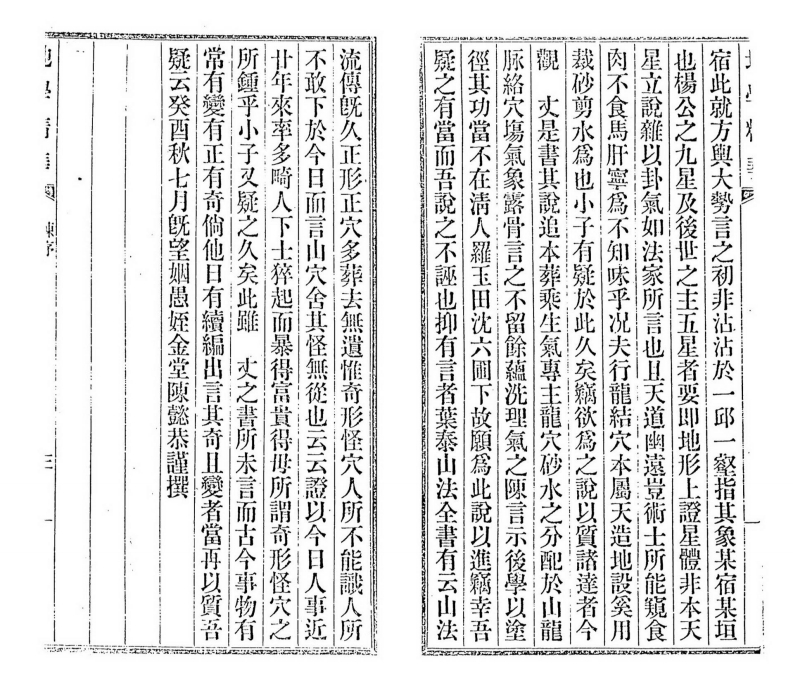 宿此就方輿大勢言之初非沾沾於一邱一壑指其象某宿某垣
也楊公之九星及後世之主五星者要即地形上證星體非本天
星立說雜以卦氣如法家所言也且天道幽遠豈術士所能窺食
肉不食馬肝寧爲不知味乎况夫行龍結穴本屬天造地設奚用
裁砂剪水爲也小子有疑於此久矣竊欲爲之說以質諸達者今
觀　丈是書其說追本葬乘生氣專主龍穴砂水之分配於山龍
脉絡穴塲氣象露骨言之不留餘蘊洗理氣之陳言示後學以塗
徑其功當不在淸人羅玉田沈六圃下故願爲此說以進竊幸吾
疑之有當而吾說之不誣也抑有言者葉泰山法全書有云山法
流傳旣久正形正穴多葬去無遺惟奇形怪穴人所不能識人所
不敢下於今日而言山穴舍其怪無從也云云證以今日人事近
廿年來率多畸人下士猝起而暴得富貴得毋所謂奇形怪穴之
所鍾乎小子又疑之久矣此雖　丈之書所未言而古今事物有
常有變有正有奇倘他日有續編出言其奇且變者當再以質吾
疑云癸酉秋七月旣望姻愚姪金堂陳懿恭謹撰